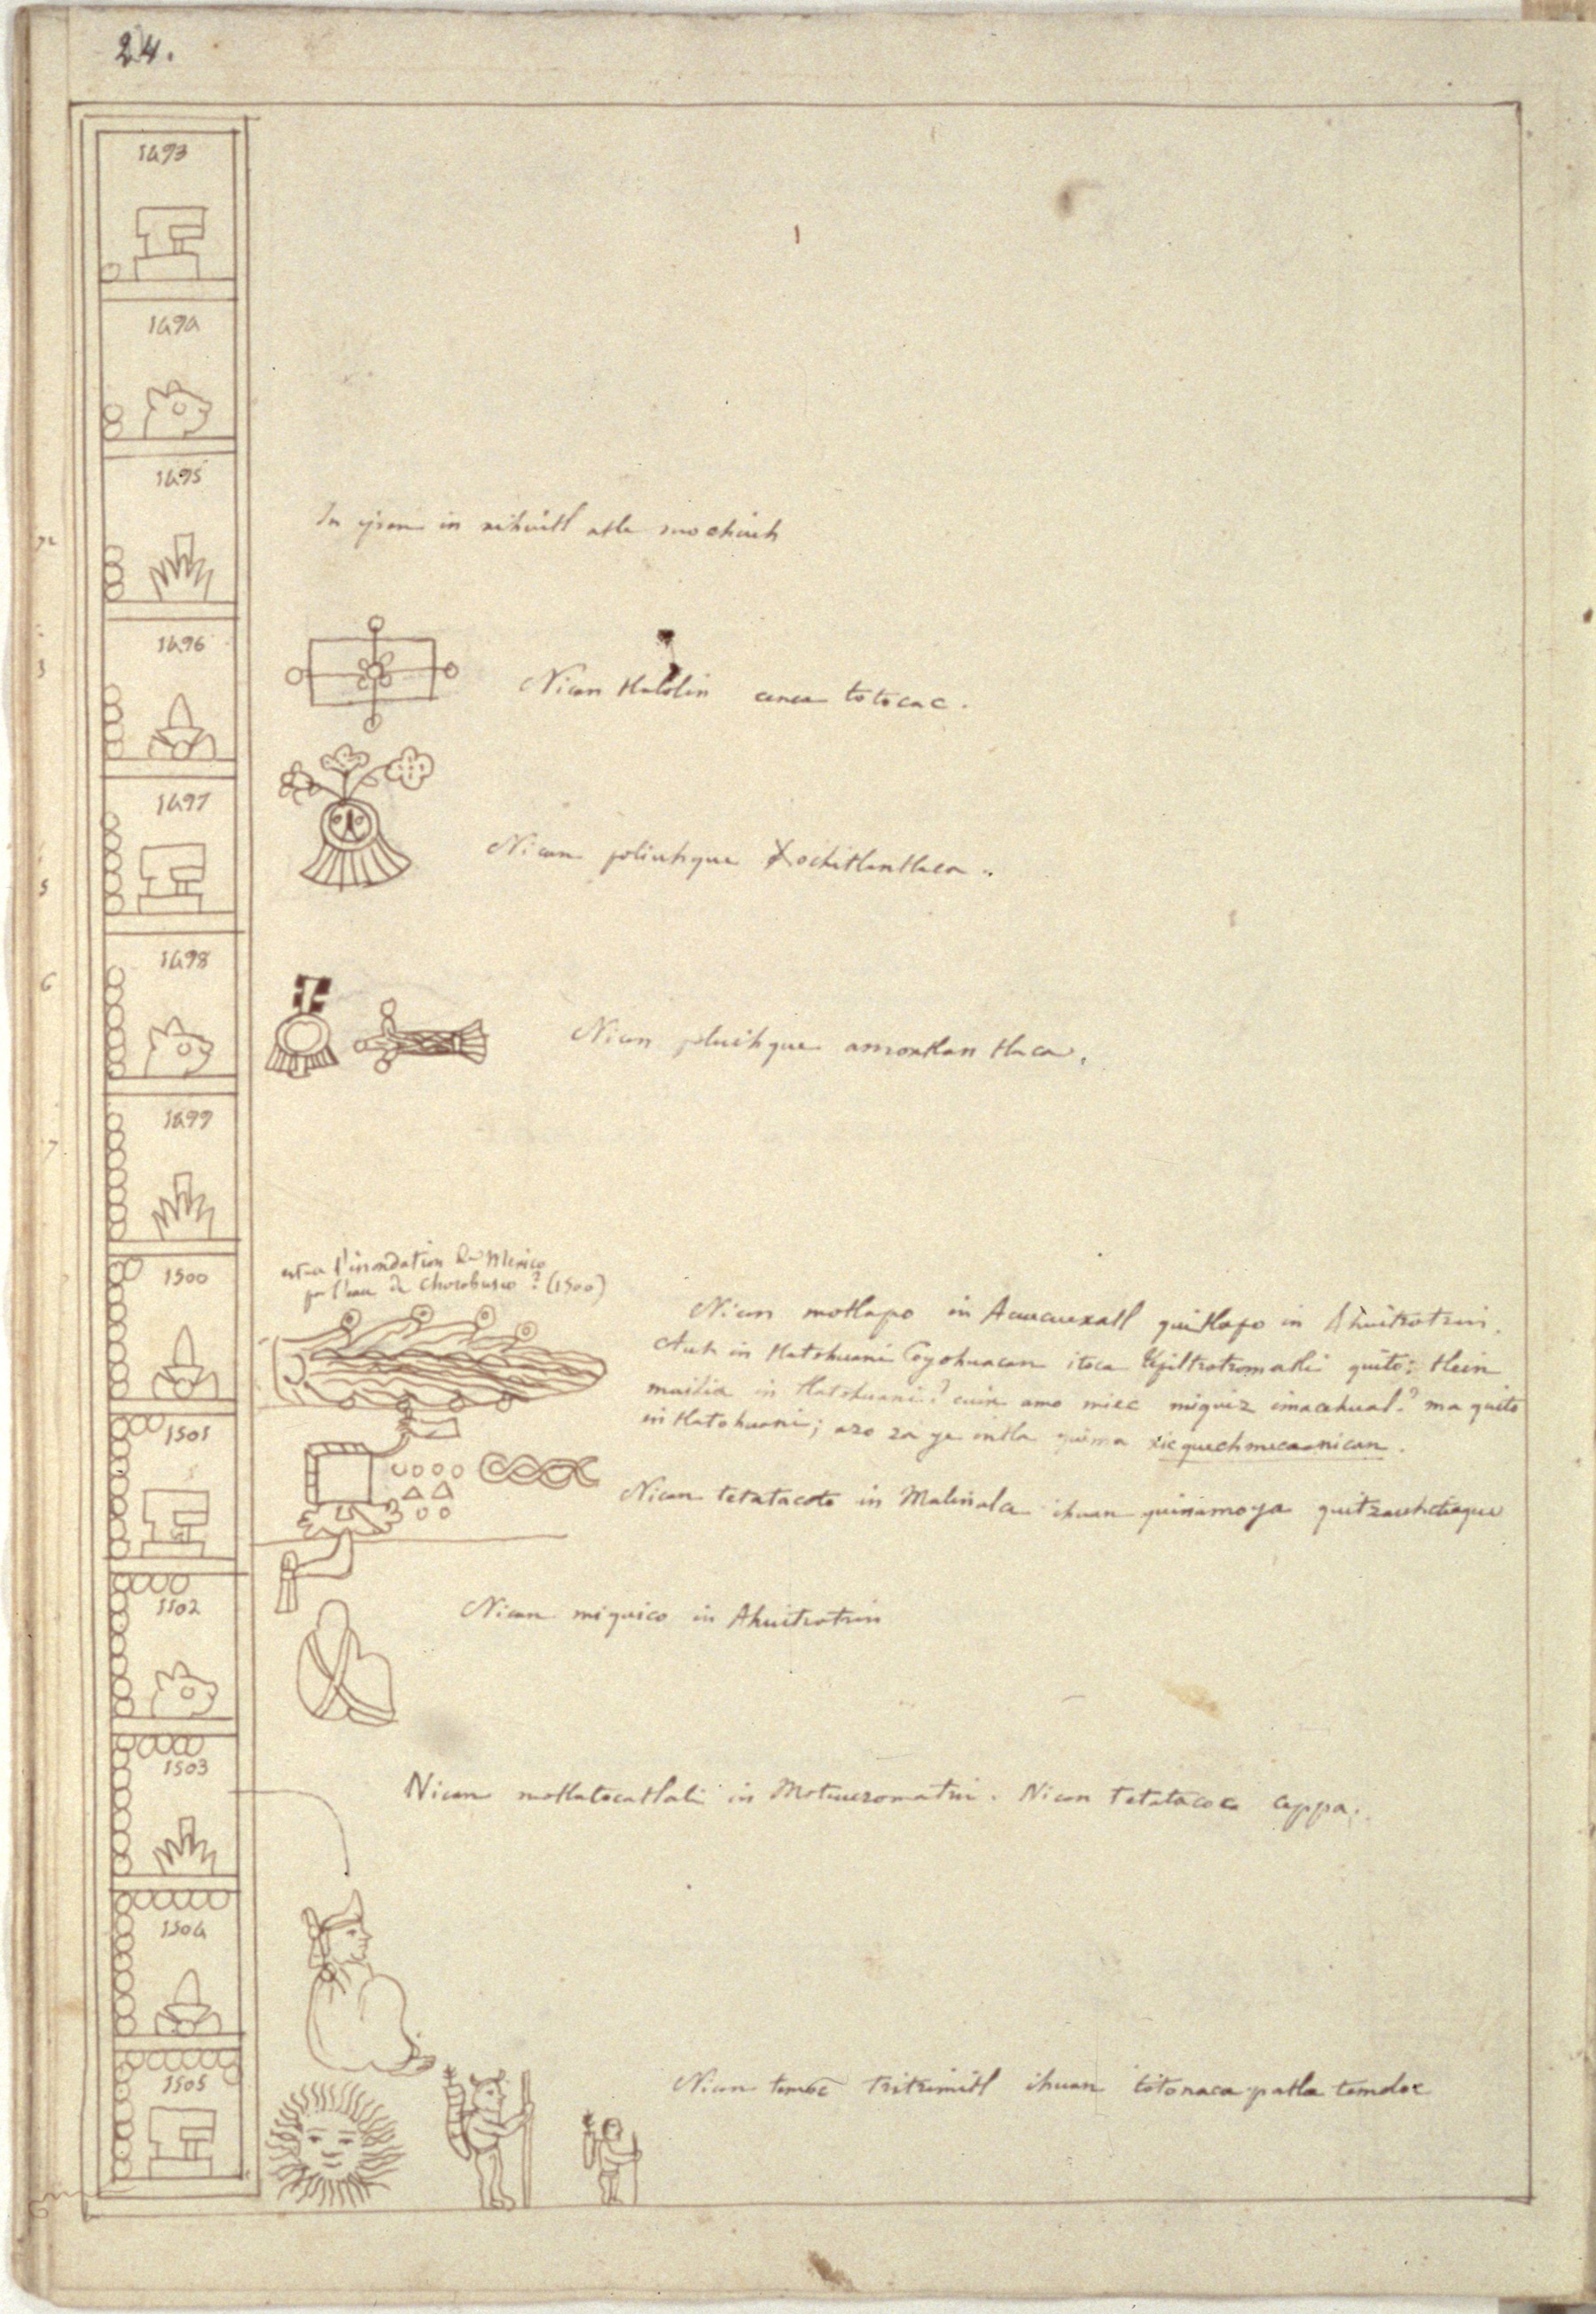 24.
1493
1494
1495
In in xihuitl atle mochiuh
1496
Nican tlalolin cenca totocac.
1497
Nican poliuhque Xochitlantlaca.
1498
Nican poliuhque amoxtlan tlaca.
1499
est-ce l'inondation de Mexico
par l'eau de Chorobusco ? (1500)
1500
Nican motlapo in Acuecuexatl quitlapo in Ahuitzotzin.
Auh in tlatohuani Coyohuacan itoca quito: tlein
in tlatohuani? cuix amo miec miquiz imacehual? ma quito
in tlatohuani; azo za ye intla nican.
1501
Nican tetatacoto in Malinalca ihuan
1502
Nican miquico in Ahuitzotzin
1503
Nican motlatocatlali in Moteuczomatzin. Nican tetatacoc ceppa.
1504
1505
Nican temoc tzitzimitl ihuan totonaca patla temoloc
3
5
6
7